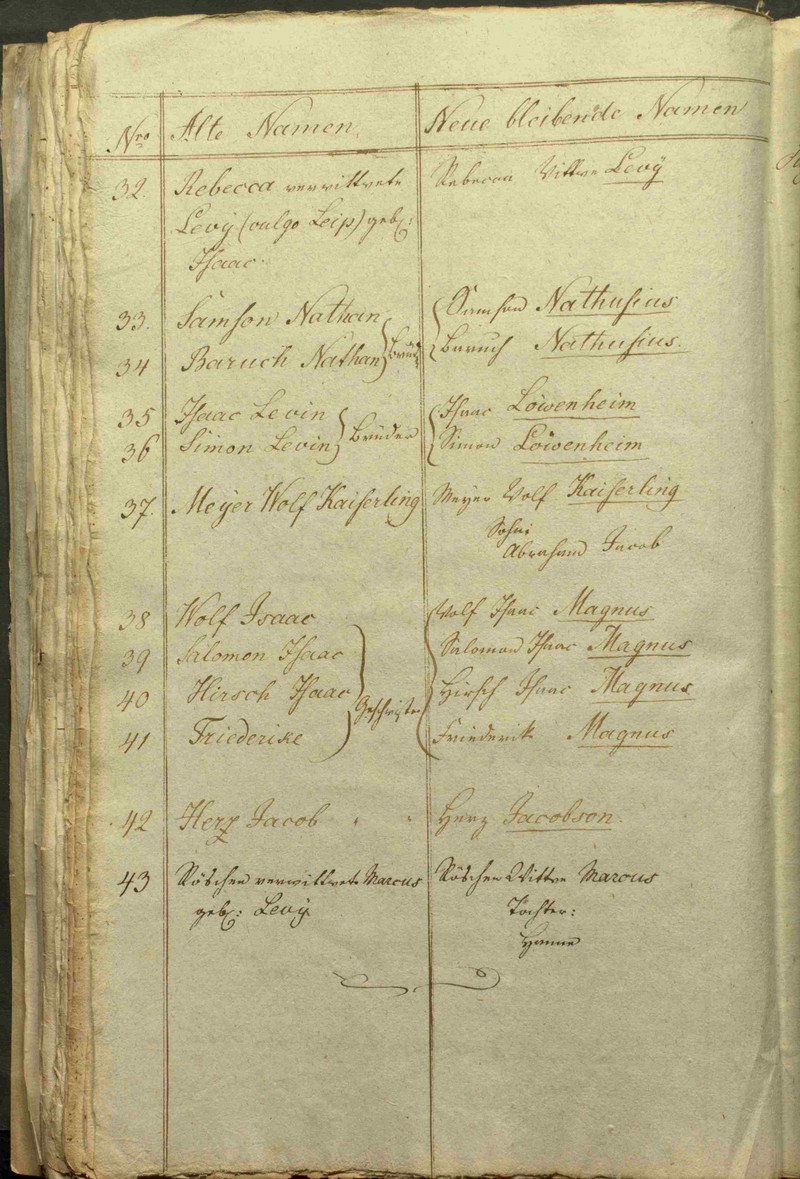 Nro Alte Namen. Neue bleibende Namen
32. Rebecca verwittwete Rebecca Wittwe Levÿ
Levÿ (vulgo Leip) geb:
Isaac.
33. Samson Nathan Samson Nathusius
34 Baruch Nathan Brüd: Baruch Nathusius.
35 Isaac Levin Isaac Löwenheim
36 Simon Levin Brüder Simon Löwenheim
37. Meÿer Wolf Kaiserling Meÿer Wolf Kaiserling
Sohn:
Abraham Jacob
38 Wolf Isaac Wolf Isaac Magnus
39 Salomon Isaac Salomon Isaac Magnus
40 Hirsch Isaac Geschwister Hirsch Isaac Magnus
41 Friederike Friederike Magnus
42 Herz Jacob " " Herz Jacobson.
43 Röschen verwittwete Marcus Röschen Wittwe Marcus
geb: Levÿ Töchter:
Hanne